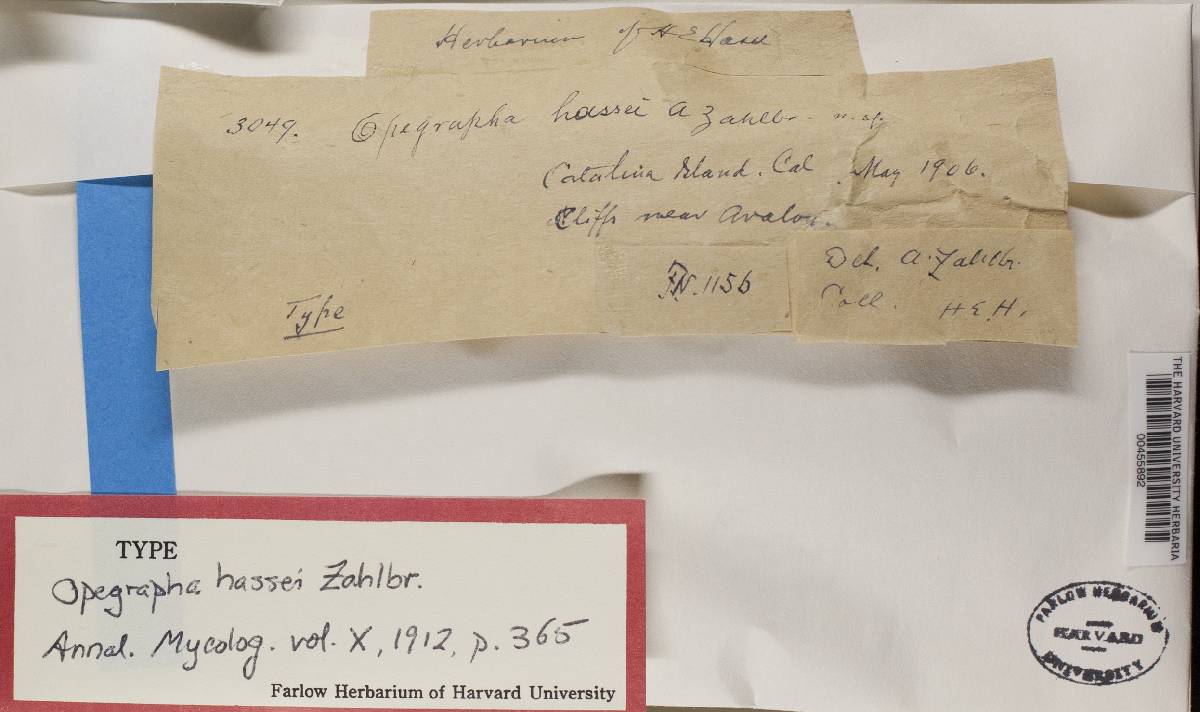 Herbarium of H E Hasse
3049. Opegrapha hassei A Zahlbr. n. sp.
Catalina Island. Cal. May 1906.
Cliffs near Avalon.
N. 1156
Det. A. Zahlbr.
Coll. H. E. H.
Type
THE HARVARD UNIVERSITY HERBARIA
00455892
TYPE
Opegrapha hassei Zahlbr.
Annal. Mycolog. vol. X, 1912, p. 365
Farlow Herbarium of Harvard University
FARLOW HERBARIUM
HARVARD
UNIVERSITY